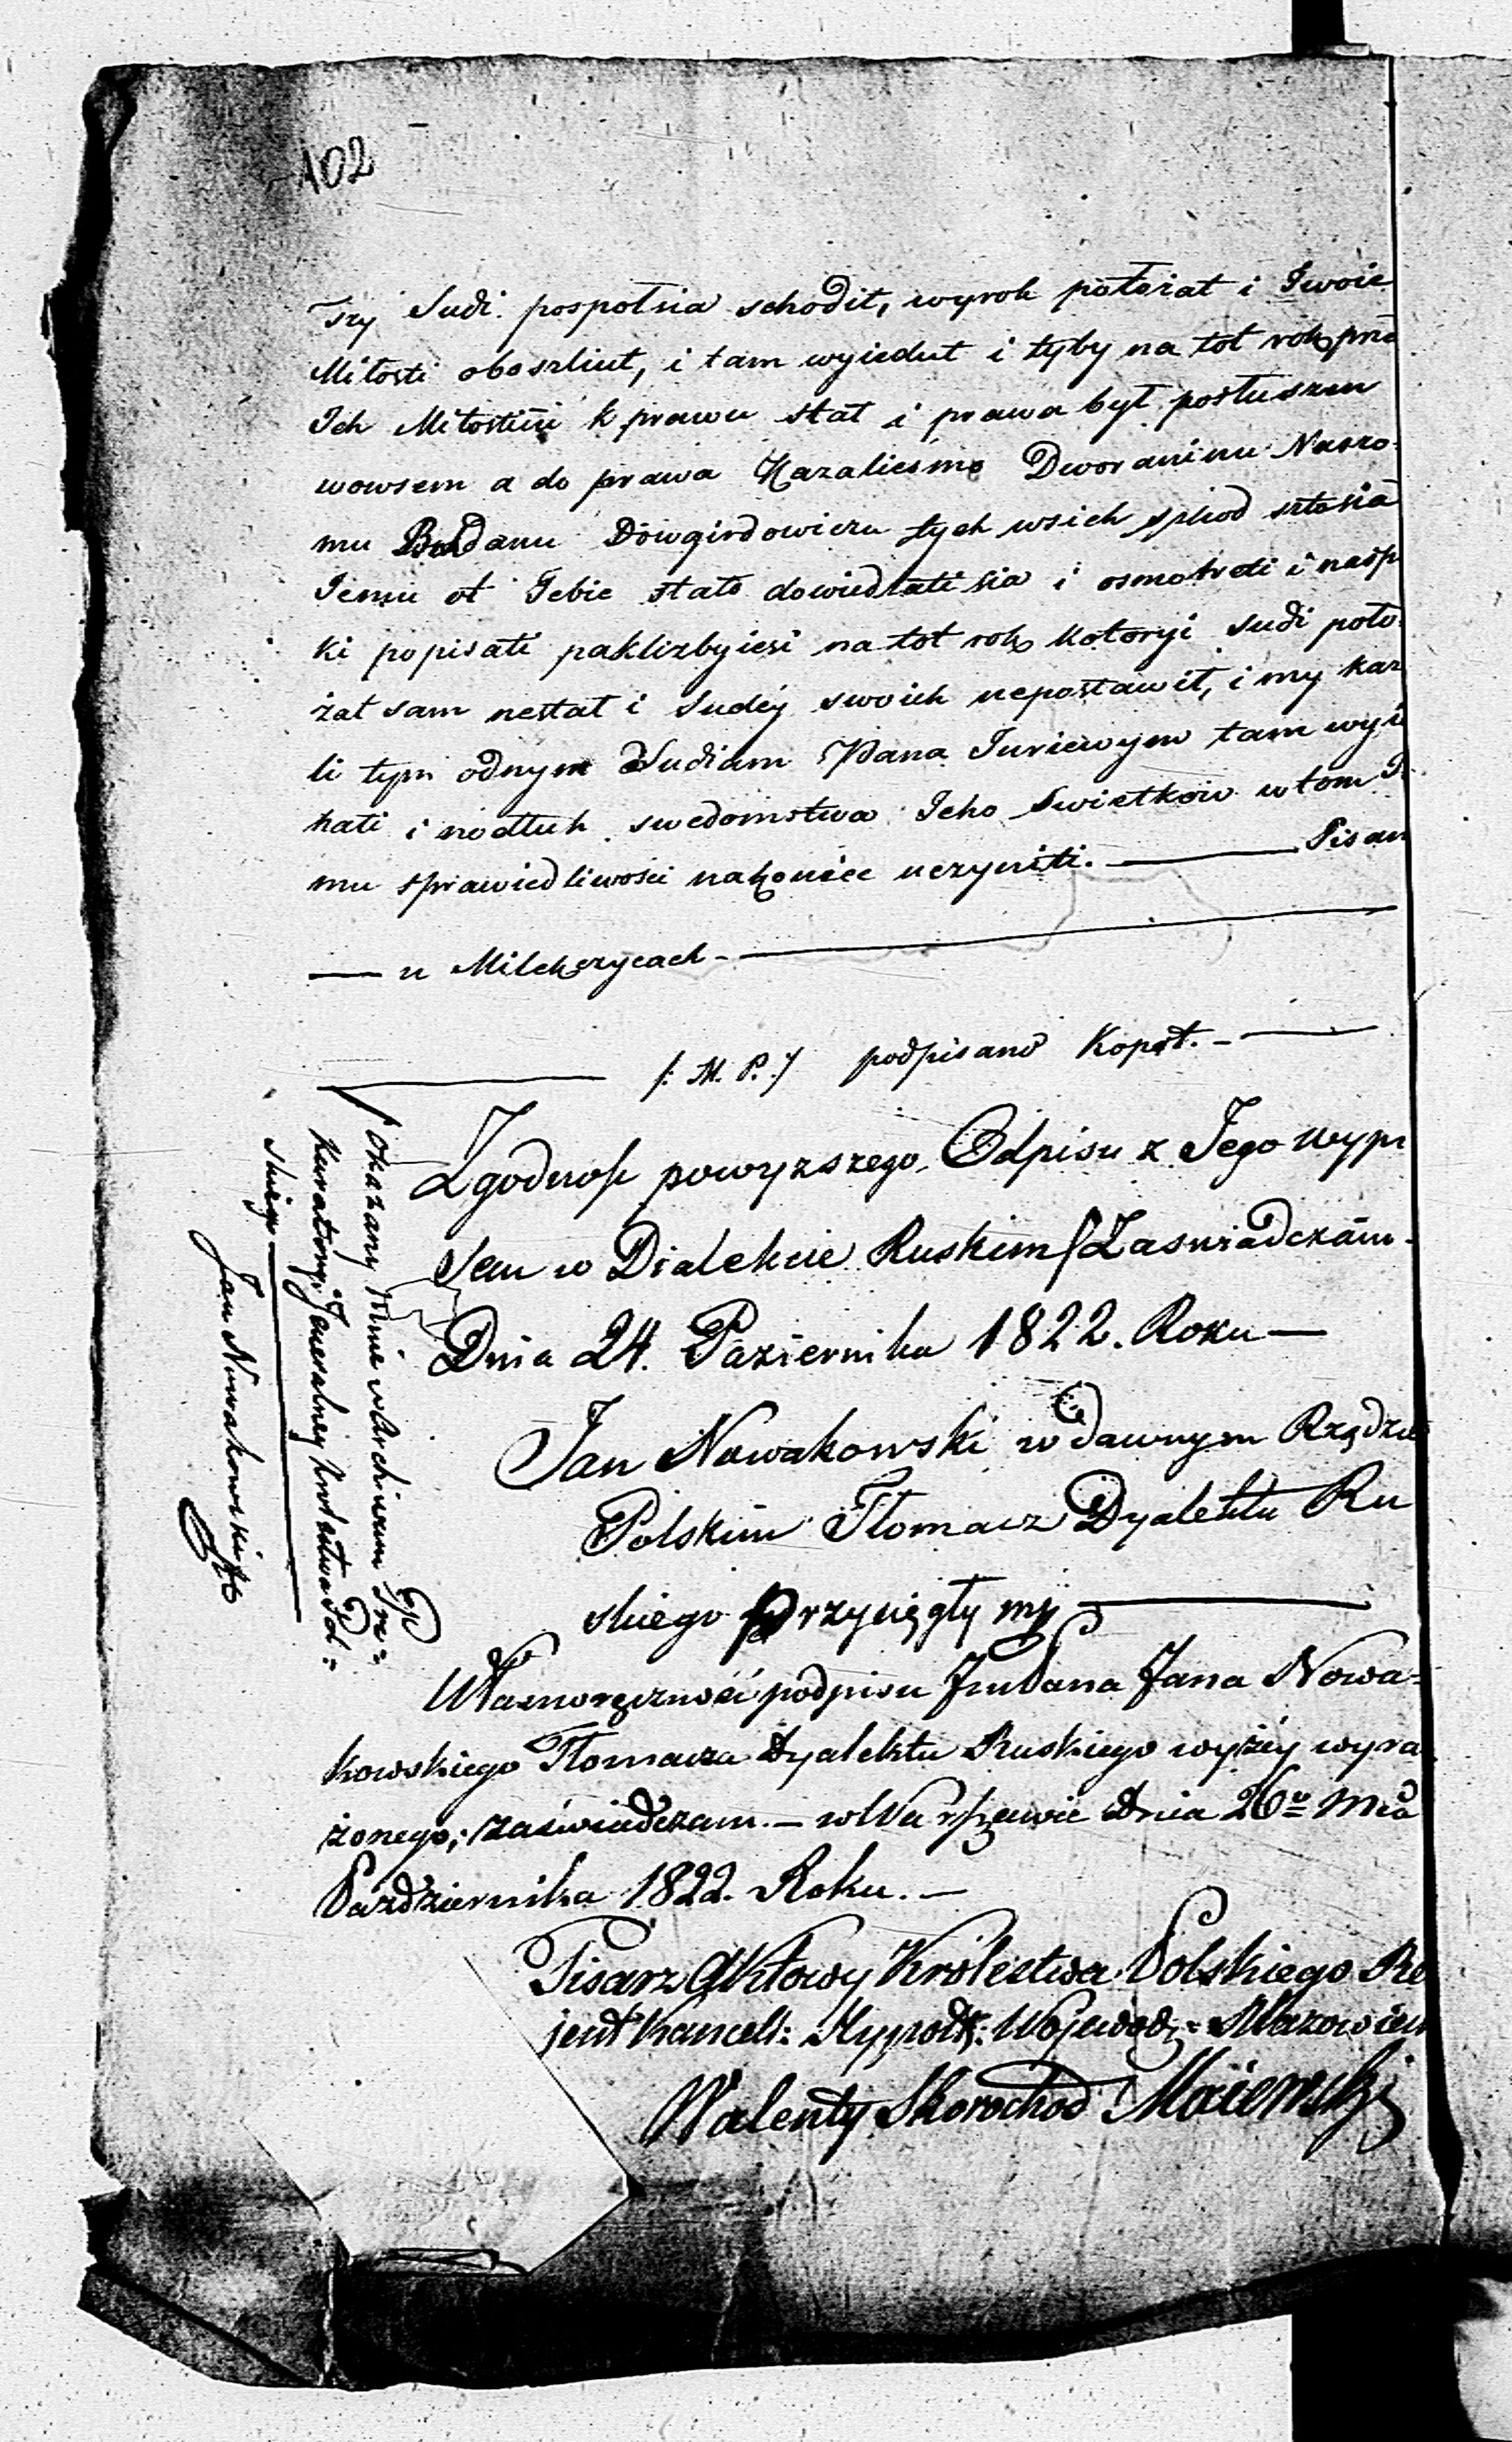 102
Szy Sudi pospolnia schodit, wyrok położat i Twoie
Miłosti oboszliut, i tam wyiedut i tyby na tot rok pre
Ich Miłostiűi k prawu stał i prawa był posłuszen
wowsem a do prawa Kazalieśmo Dworaninu Naszo-
mu Bohdanu Dowgirdowiczu tych wsich szkod sztosia
Iemu ot Tebie stało dowiedatisia i osmotreti i na
ki popisati paklizbyiesi na tot rok kotoryi sudi poło-
żat sam nestał i Sudéy swoich nepostawił, i my kaz
li tym odnym Sudiam Pana Juriewym tam wyie
hati i podłuh swedomstwa Jeho Swietkow w tom
mu sprawiedliwosti nakoniec uczyniti. — Pisan
— u Milchzycach —
/: M. P. :/ podpisano Kopot. —
Zgodność powyższego Odpisu z Jego wypi
sem w Dialekcie Ruskim Zaswiadczam.
Dnia 24. Paziernika 1822. Roku —
Jan Nowakowski w dawnym Rządzie
Polskim Tłomacz Dyalektu Ru
skiego przysięgły mp —
Własnoręczność podpisu Pana Jana Nowa-
kowskiego Tłomacza Dyalektu Ruskiego wyżéy wyra
żonego, zaświadczam. — w Warszawie dnia 26º Mca
Października 1822. Roku. —
Pisarz Aktowy Królestwa Polskiego Re
jent Kancell: Hypotk: Wojewodz: Mazowiec
Walenty Skorochod Maiewski
Okazany Mnie w Archiwum
Kuratoryi Jneralney Królestwa Pol:
skiego —
Jan Nowakowski